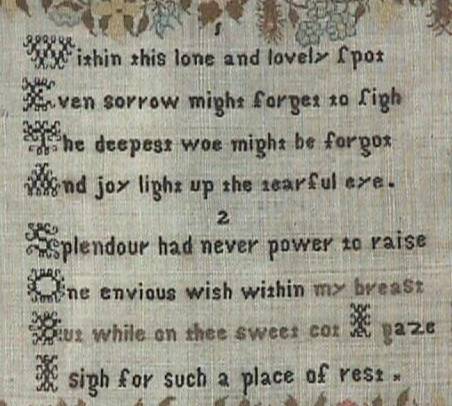 1
Within this lone and lovely ſpot
Even sorrow might forget to ſigh
The deepest woe might be forgot
And joy light up the tearful eye.
2
Splendour had never power to raise
One envious wish within my breaSt
But while on thee sweet cot I gaze
I sigh for such a place of rest.